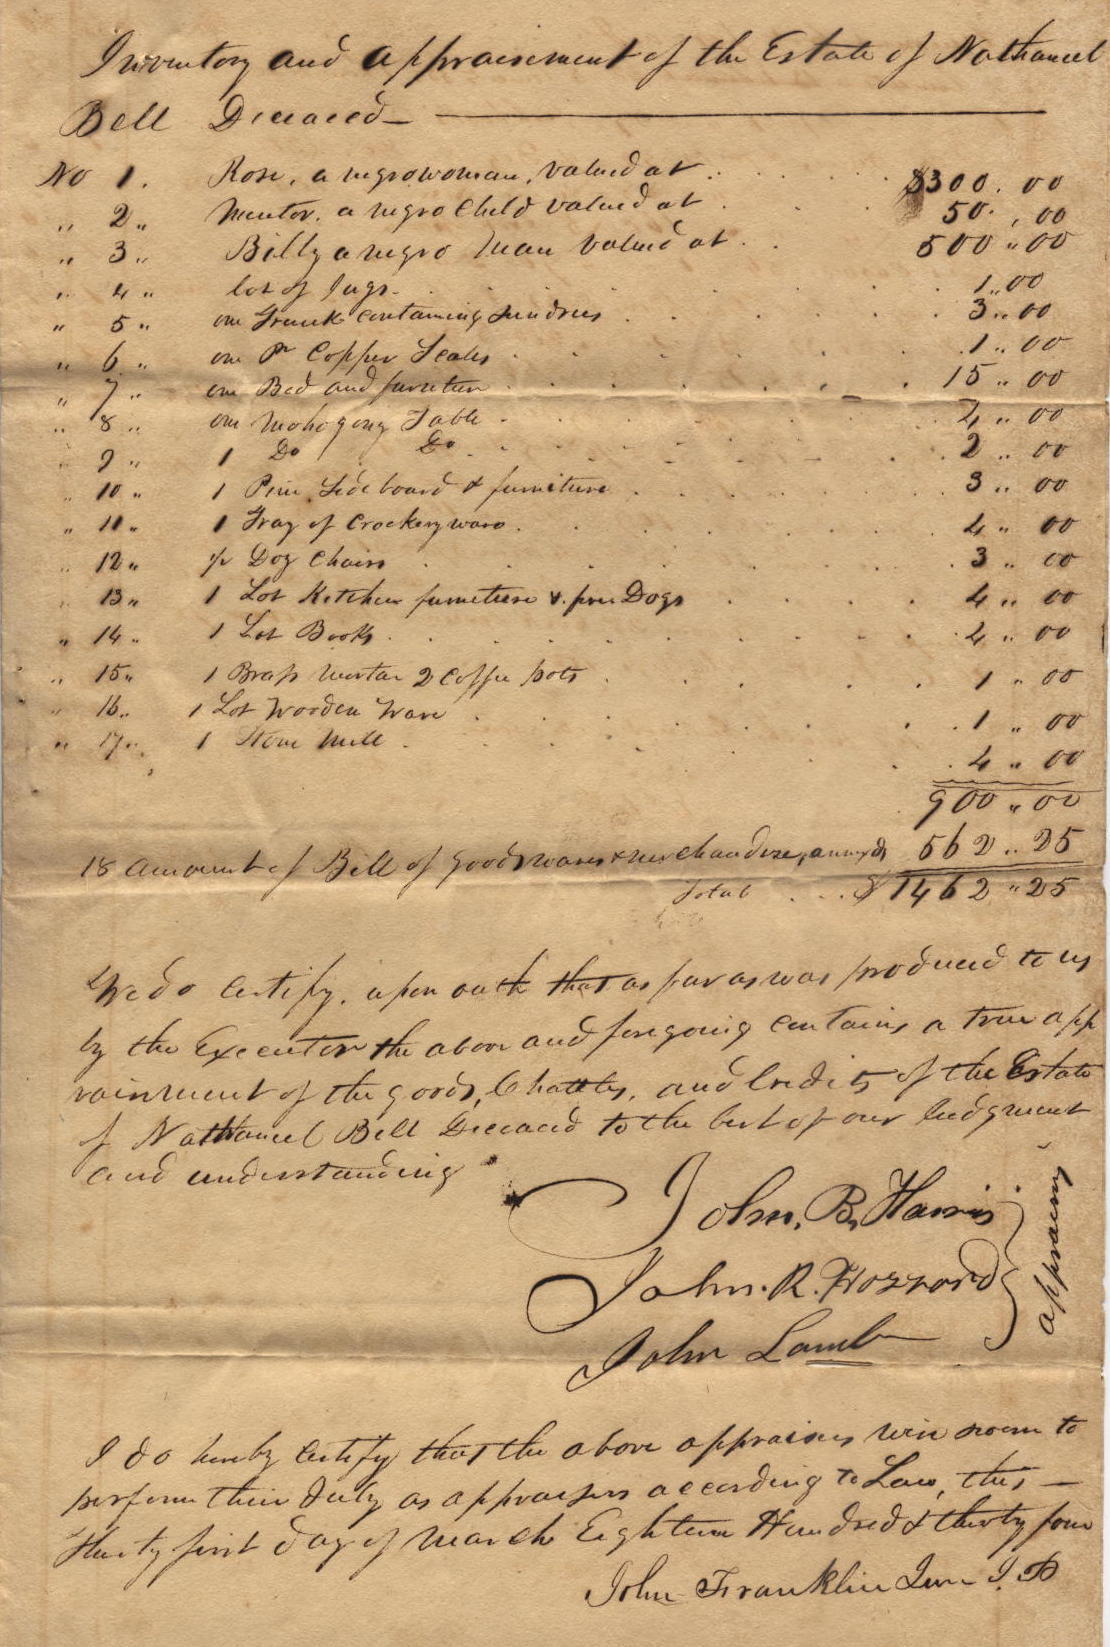 Inventory and appraisement of the Estate of Nathaniel
Bell Deceaced
No 1. Rose, a negro woman, valued at $300.00
" 2 " Mentor, a negro Child valued at 50.,00
" 3 " Billy a negro Man valued at 500 " 00
" 4 " lot of Jugs 1 " 00
" 5 " one Trunk Containing Sundries 3 " 00
" 6 " one Pr Copper Scales 1 " 00
" 7 " one Bed and furniture 15 " 00
" 8 " one Mahogony Table 4 " 00
" 9 " 1 Do Do 2 " 00
" 10 " 1 Pine Side board & furniture 3 " 00
" 11 " 1 Tray of Crockery ware 4 " 00
" 12 " Dog Chairs 3 " 00
" 13 " 1 Lot Kitchen furniture & Dogs 4 " 00
" 14 " 1 Lot Books 4 " 00
" 15 " 1 Brass Mortar 2 Coffee pots 1 " 00
" 16 " 1 Lot Wooden Ware 1 " 00
" 17 " 1 Stone Mill 4 " 00
900 " 00
18 amount of Bill of goods wares & merchandize, annexed 562 " 25
Total $1462 " 25
We do Certify, upon oath that as far as was produced to us
by the Executor the above and foregoing contains a true app
raisment of the goods, Chattles, and Credits of the Estate
of Nathaniel Bell Deceaced to the best of our Judgment
and understanding
John. B. Harris
John. R. Hozzard
John Lamb
appraisers
I do hereby Certify that the above appraisers were sworn to
perform their duty as appraisers according to Law, this
thirty first day of March Eighteen Hundred & thirty four
John Franklin Jun J. P